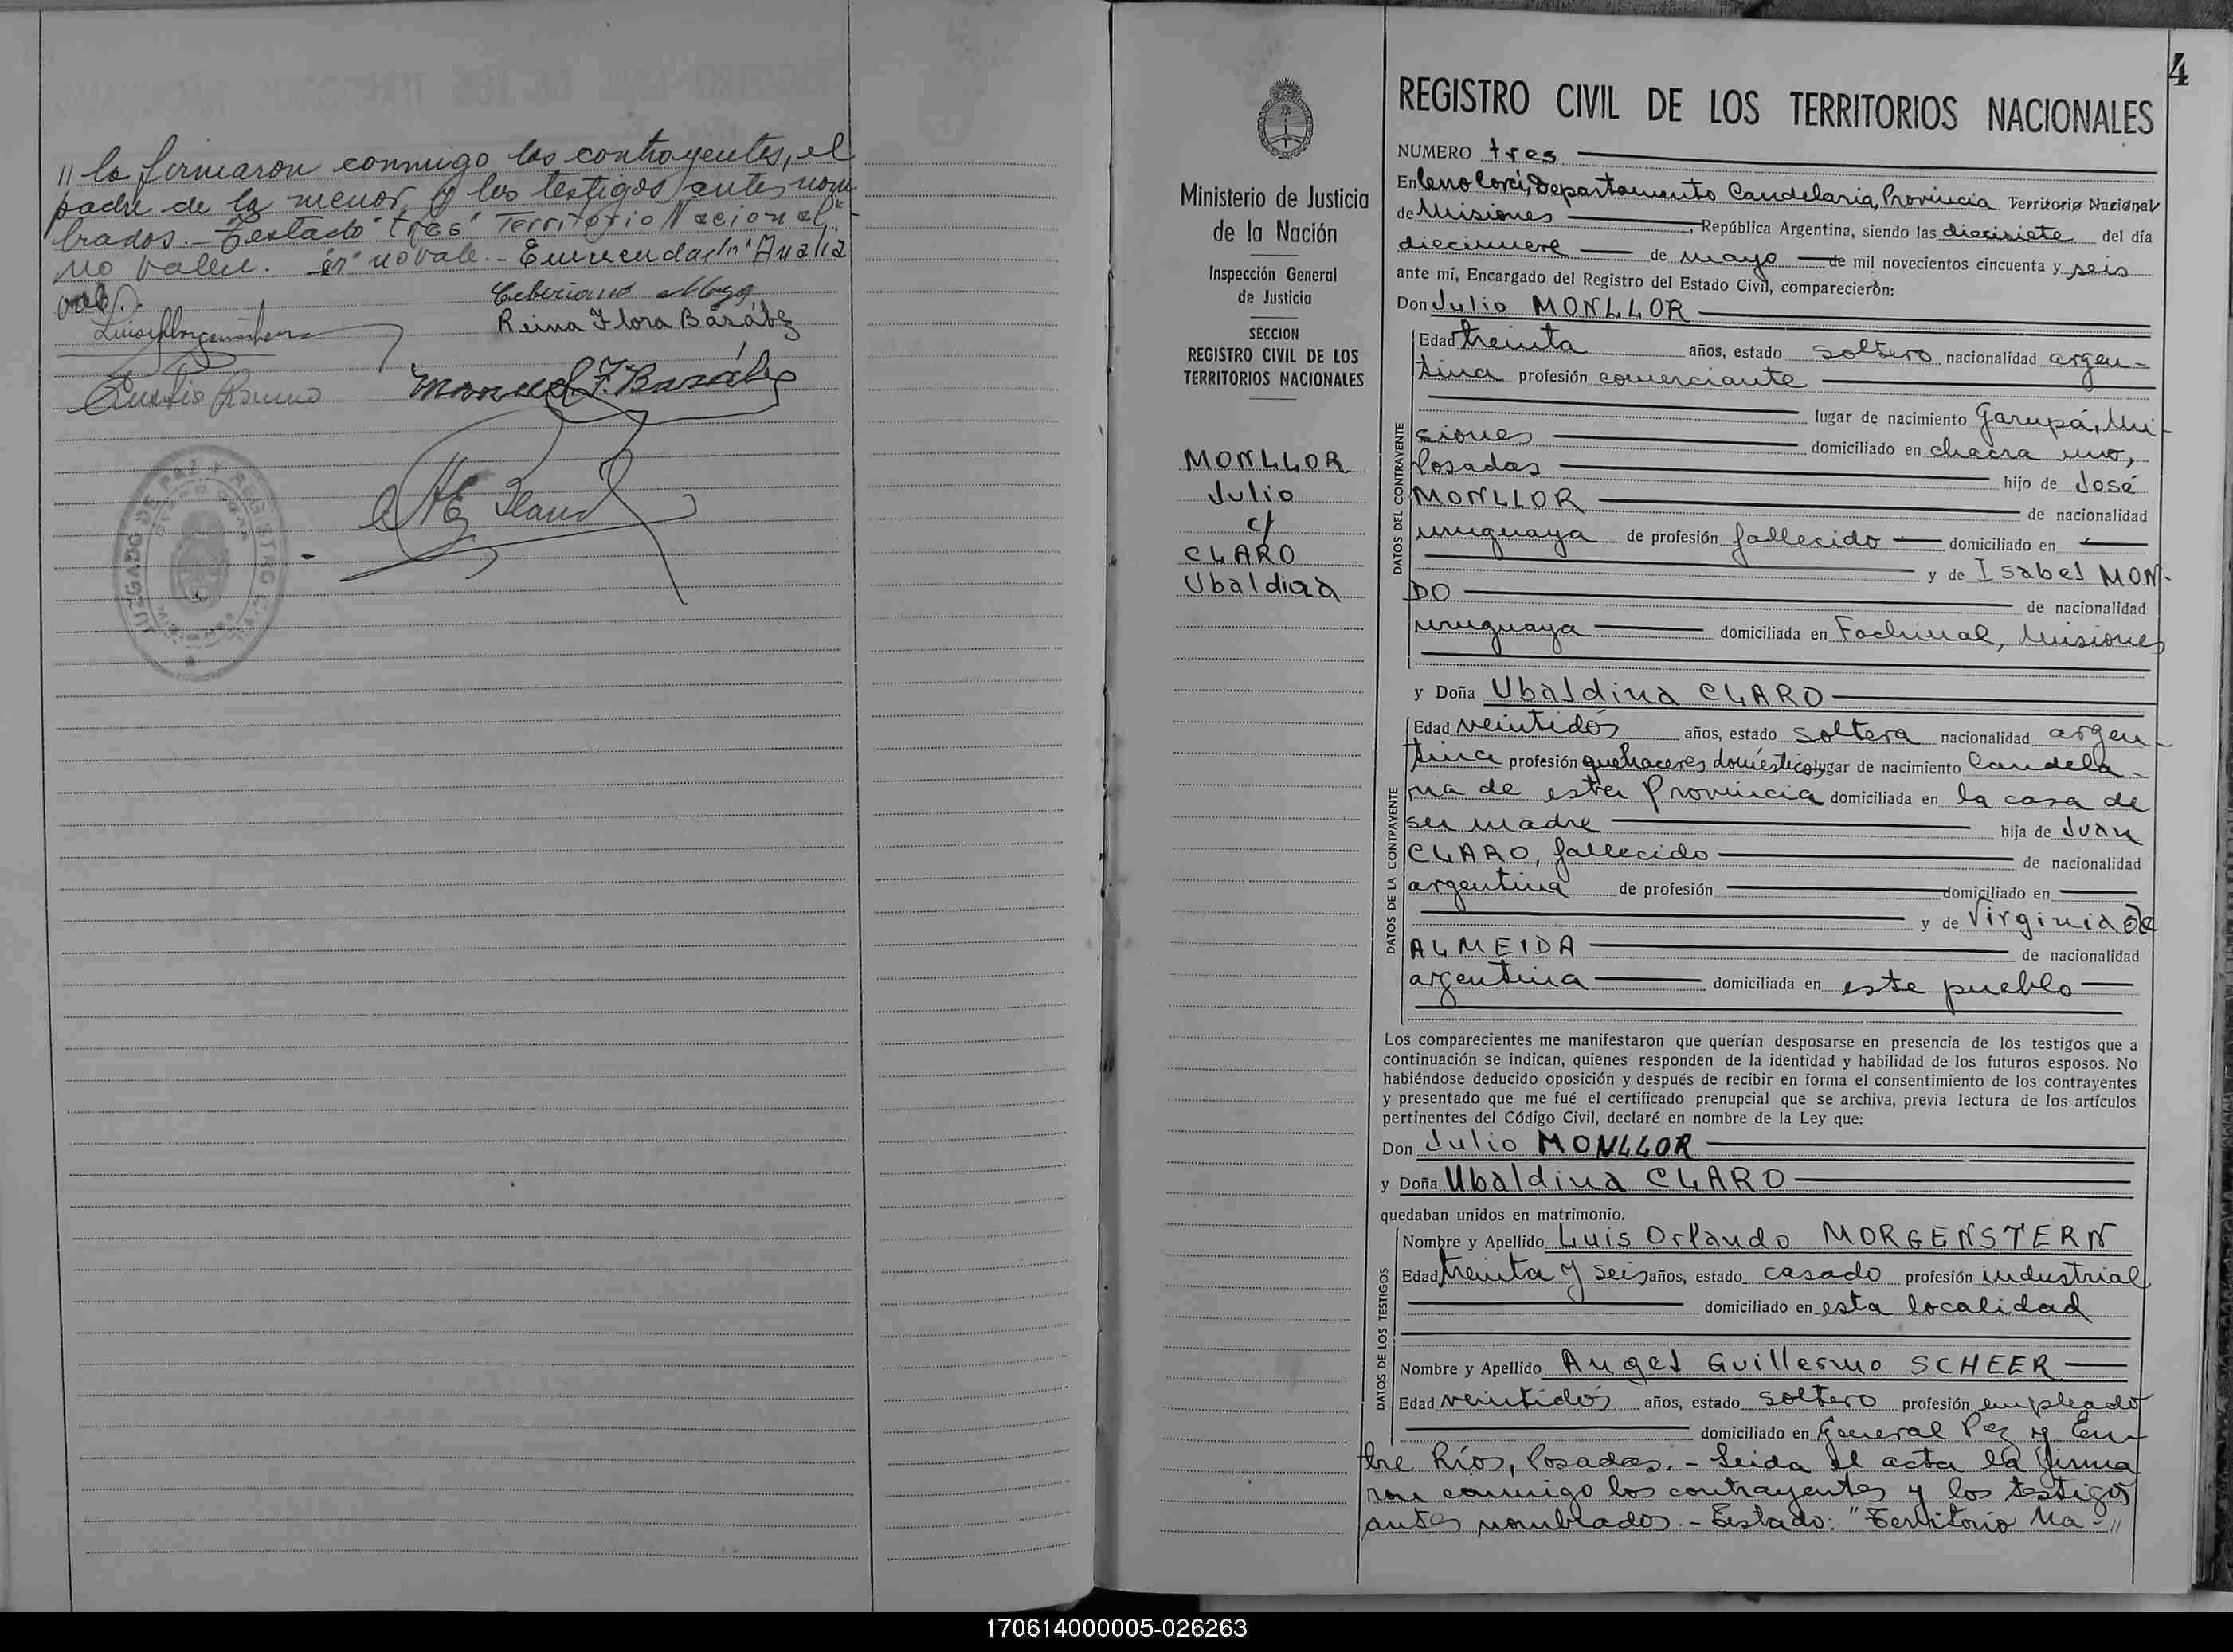 // la firmaron conmigo los contrayentes, el
padre de la menor y los testigos antes nom-
brados.- Testado "tres" "Territorio Nacional"
no valen. "er" no vale.- Enmendado "Analia"
vale.-
Ceberiano
Reina Flora Barabz
Manuel F.
4
REGISTRO CIVIL DE LOS TERRITORIOS NACIONALES
NUMERO tres
En Cerro Corá, Departamento Candelaria, Provincia Territorio Nacional
de Misiones, República Argentina, siendo las diecisiete del día
diecinueve de mayo de mil novecientos cincuenta y seis
ante mí, Encargado del Registro del Estado Civil, comparecierón:
Don Julio MONLLOR
Edad treinta años, estado soltero nacionalidad argen-
tina profesión comerciante
lugar de nacimiento Garupá, Mi-
siones domiciliado en chacra uno,
Posadas hijo de José
MONLLOR de nacionalidad
uruguaya de profesión fallecido domiciliado en
y de Isabel MON-
DO de nacionalidad
uruguaya domiciliada en Fachinal, Misiones
y Doña Ubaldina CLARO
Edad veintidós años, estado soltera nacionalidad argen-
tina profesión quehaceres domésticos lugar de nacimiento Candela-
ria de esta Provincia domiciliada en la casa de
su madre hija de Juan
CLARO, fallecido de nacionalidad
argentina de profesión domiciliado en
y de Virginia de
ALMEIDA de nacionalidad
argentina domiciliada en este pueblo
DATOS DEL CONTRAYENTE
DATOS DE LA CONTRAYENTE
Ministerio de Justicia
de la Nación
Inspección General
de Justicia
SECCION
REGISTRO CIVIL DE LOS
TERRITORIOS NACIONALES
MONLLOR
Julio
c/
CLARO
Ubaldina
Los comparecientes me manifestaron que querían desposarse en presencia de los testigos que a
continuación se indican, quienes responden de la identidad y habilidad de los futuros esposos. No
habiéndose deducido oposición y después de recibir en forma el consentimiento de los contrayentes
y presentado que me fué el certificado prenupcial que se archiva, previa lectura de los artículos
pertinentes del Código Civil, declaré en nombre de la Ley que:
Don Julio MONLLOR
y Doña Ubaldina CLARO
quedaban unidos en matrimonio.
Nombre y Apellido Luis Orlando MORGENSTERN
Edad treinta y seis años, estado casado profesión industrial
domiciliado en esta localidad
Nombre y Apellido Angel Guillermo SCHEER
Edad veintidós años, estado soltero profesión empleado
domiciliado en General Paz y En-
tre Ríos, Posadas.- Leida el acta la firma
ron conmigo los contrayentes y los testigos
antes nombrados.- Testado: "Territorio Na-//
DATOS DE LOS TESTIGOS
170614000005-026263